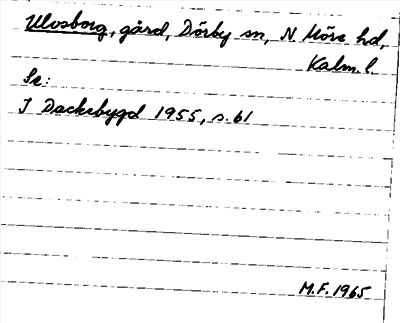 Ulvsborg, gård, Dörby sn, N Möre hd,
Kalm. l.
Se:
I Dackebygd 1955, s. 61
M.F. 1965